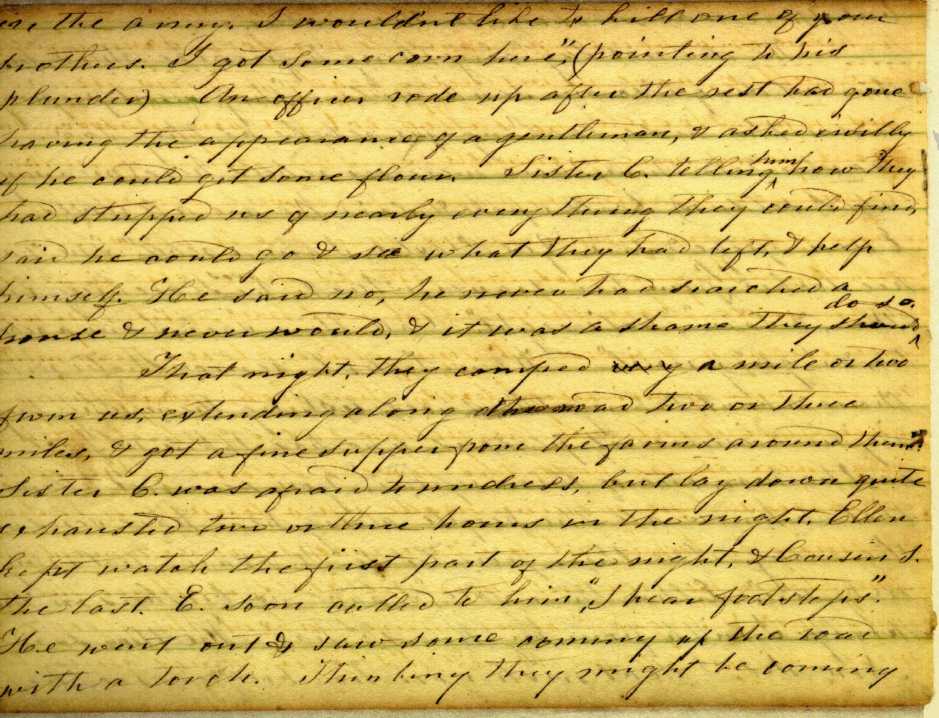 in the army. I wouldn't like to kill one of your
brothers. I got some corn here", (pointing to his
plunder) An officer rode up after the rest had gone
having the appearance of a gentleman, & asked civilly
if he could get some flour. Sister C. telling him how they
had stripped us of nearly everything they could find,
said he could go & see what they had left, & help
himself. He said no, he never had searched a
house & never would, & it was a shame they should do so.
That night, they camped a mile or two
from us, extending along the road two or three
miles, & got a fine supper from the farms around them.
Sister C. was afraid to undress, but lay down quite
exhausted two or three hours in the night. Ellen
kept watch the first part of the night, & Cousin S.
the last. E. soon called to him, "I hear footsteps".
He went out & saw some coming up the road
with a torch. Thinking they might be coming